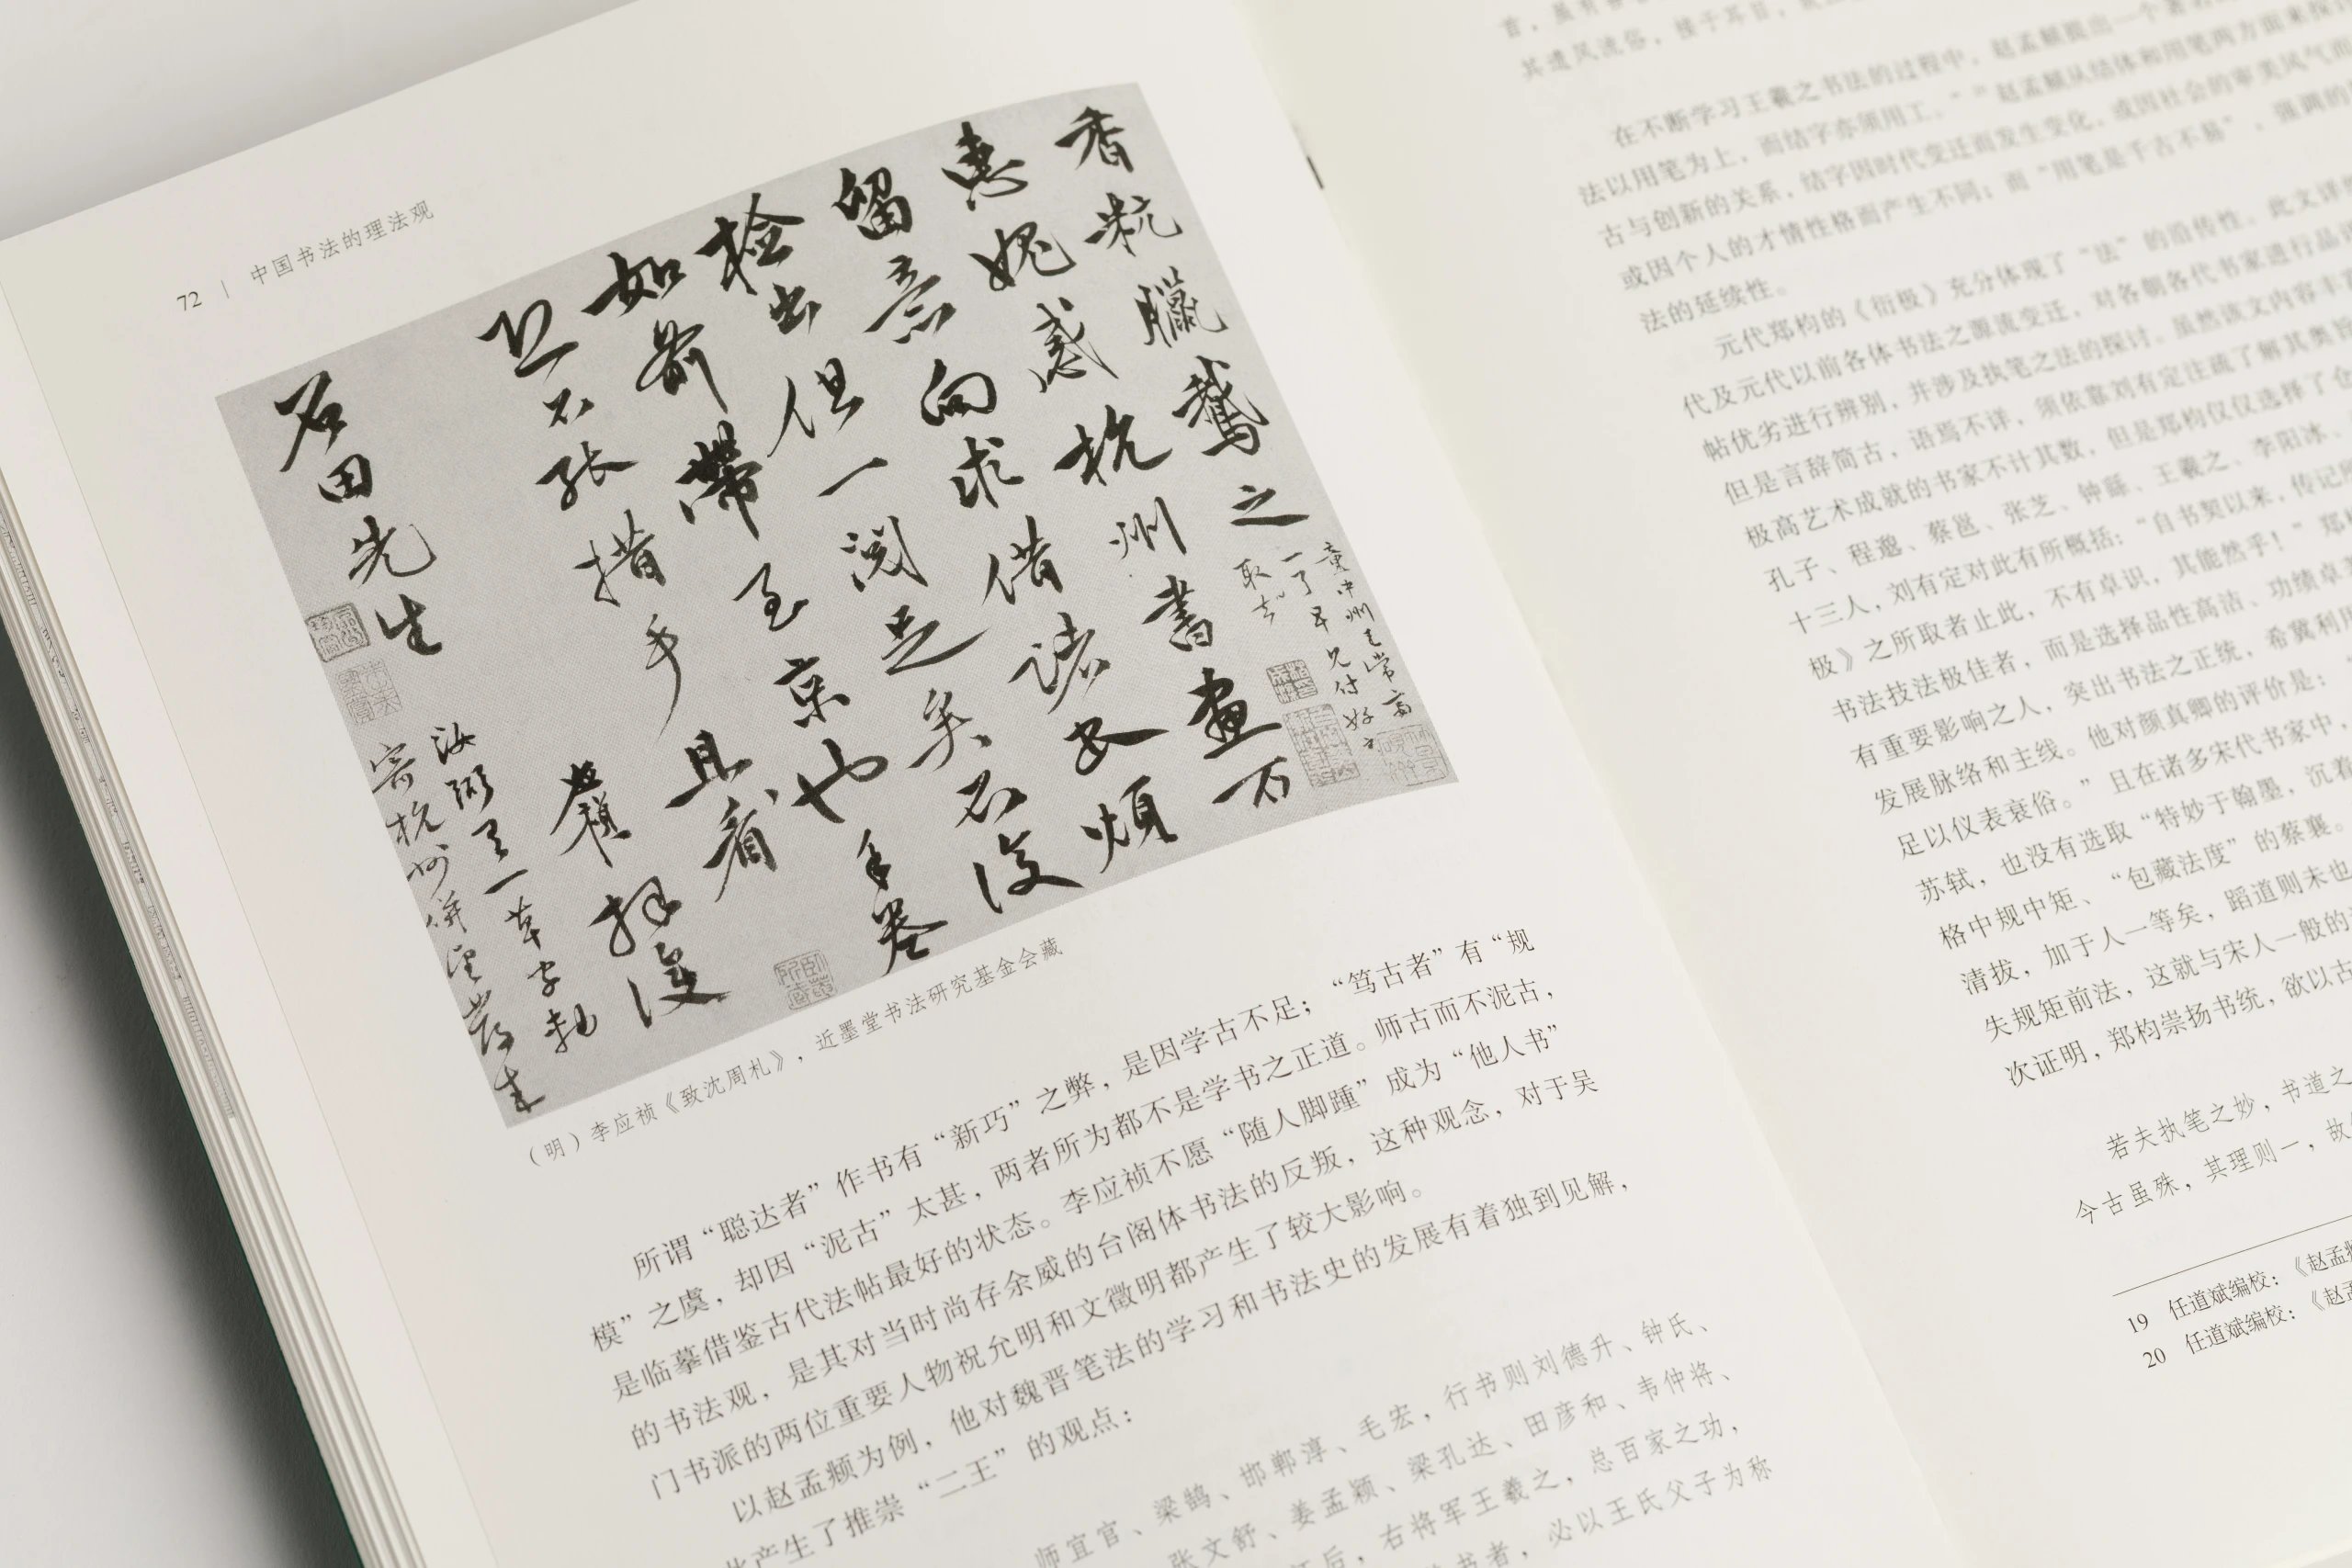 72 | 中国书法的理法观
香粇臘鵞之
惠媿感杭州書畫不
留意向求借諸公煩
检出但一阅足矣不必
如前帶至京也手卷
且不张措手且看
應禎拜復
石田先生
(明)李应祯《致沈周札》,近墨堂书法研究基金会藏
所谓“聪达者”作书有“新巧”之弊,是因学古不足;“笃古者”有“规
模”之虞,却因“泥古”太甚,两者所为都不是学书之正道。师古而不泥古,
是临摹借鉴古代法帖最好的状态。李应祯不愿“随人脚踵”成为“他人书”
的书法观,是其对当时尚存余威的台阁体书法的反叛,这种观念,对于吴
门书派的两位重要人物祝允明和文徵明都产生了较大影响。
以赵孟頫为例,他对魏晋笔法的学习和书法史的发展有着独到见解,
此产生了推崇“二王”的观点:
师宜官、梁鹄、邯郸淳、毛宏,行书则刘德升、钟氏、
张文舒、姜孟颖、梁孔达、田彦和、韦仲将、
右将军王羲之,总百家之功,
书者,必以王氏父子为称
其遗风流俗,接于耳目,
在不断学习王羲之书法的过程中,赵孟頫提出一个著名
法以用笔为上,而结字亦须用工。”赵孟頫从结体和用笔两方面来探
古与创新的关系,结字因时代变迁而发生变化,或因社会的审美风气而
或因个人的才情性格而产生不同;而“用笔是千古不易”,强调的
法的延续性。
元代郑杓的《衍极》充分体现了“法”的沿传性。此文详
代及元代以前各体书法之源流变迁,对各朝各代书家进行品评
帖优劣进行辨别,并涉及执笔之法的探讨。虽然该文内容丰
但是言辞简古,语焉不详,须依靠刘有定注疏了解其奥旨
极高艺术成就的书家不计其数,但是郑杓仅仅选择了仓
孔子、程邈、蔡邕、张芝、钟繇、王羲之、李阳冰、
十三人,刘有定对此有所概括:“自书契以来,传记所
极》之所取者止此,不有卓识,其能然乎!”郑
书法技法极佳者,而是选择品性高洁、功绩卓著
有重要影响之人,突出书法之正统,希冀利用
发展脉络和主线。他对颜真卿的评价是:
足以仪表衰俗。”且在诸多宋代书家中,
苏轼,也没有选取“特妙于翰墨,沉着
格中规中矩、“包藏法度”的蔡襄。
清拔,加于人一等矣,蹈道则未也
失规矩前法,这就与宋人一般的
次证明,郑杓崇扬书统,欲以古
若夫执笔之妙,书道之
今古虽殊,其理则一,故
19 任道斌编校:《赵孟頫
20 任道斌编校:《赵孟